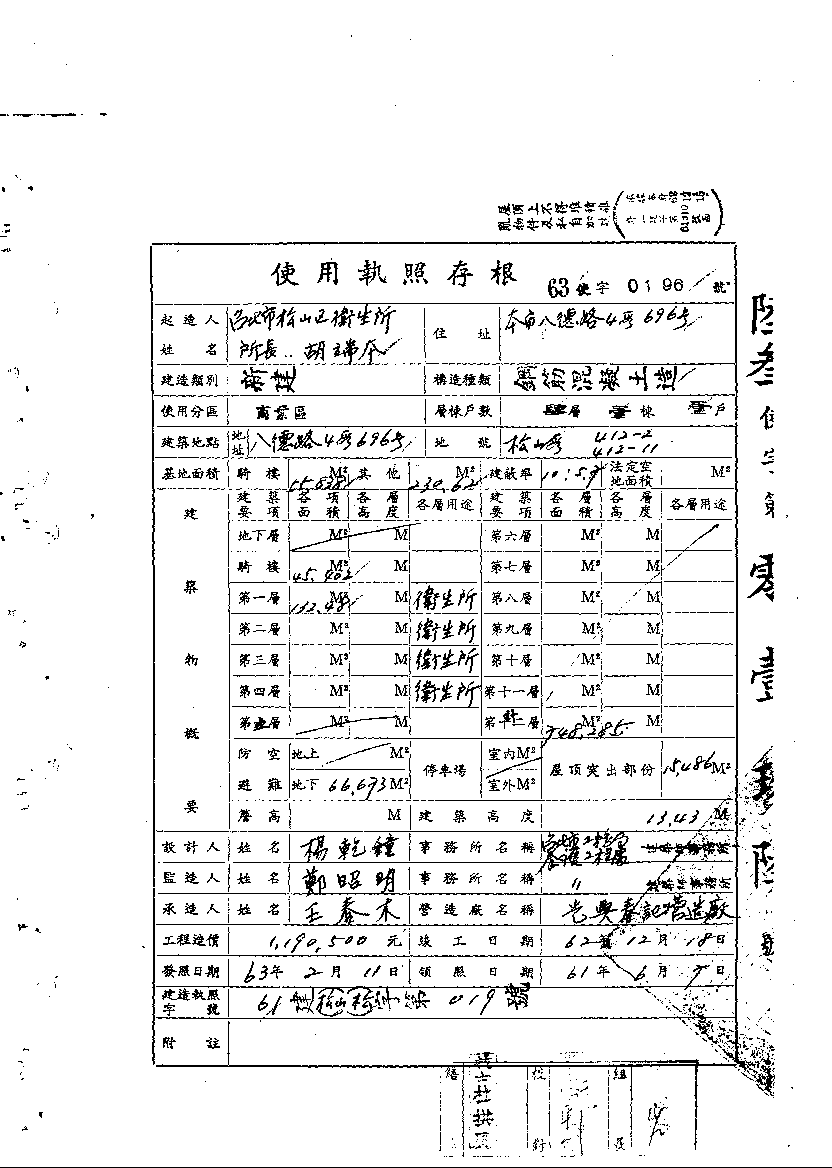 屋頂上不得堆積雜
使用執照存根
63使字 0196 號
起造人
姓名
台北市松山區衛生所
所長 胡瑞
住址
本市八德路4段696號
建造類別 新建 構造種類 鋼筋混凝土造
使用分區 商業區 層棟戶數 肆層 壹棟 壹戶
建築地點 地址 八德路4段696號 地號 松山段 412-2
412-11
基地面積 騎樓 55.838 M² 其他 230.62 M² 建蔽率 法定空地面積 M²
建築物概要
建築要項 各項面積 各層高度 各層用途 建築要項 各層面積 各層高度 各層用途
地下層 M² M 第六層 M² M
騎樓 45.402 M 第七層 M² M
第一層 132.48 M² M 衛生所 第八層 M² M
第二層 M² M 衛生所 第九層 M² M
第三層 M² M 衛生所 第十層 M² M
第四層 M² M 衛生所 第十一層 M² M
第五層 M² M 748.285 M² M
防空避難 地上 M² 停車場 室內M² 屋頂突出部份 15.486M²
地下 66.693M² 室外M²
簷高 M 建築高度 13.43 M
設計人 姓名 楊乾鐘 事務所名稱 建築師事務所
監造人 姓名 鄭昭明 事務所名稱 〃 建築師事務所
承造人 姓名 王泰木 營造廠名稱 營造廠
工程造價 1,190,500 元 竣工日期 62年12月18日
發照日期 63年2月11日 領照日期 61年6月7日
建造執照字號 61 建(松山)(松山) 字第 019 號
附註
陸叁使字第零壹玖陸號
繕 校對 組長